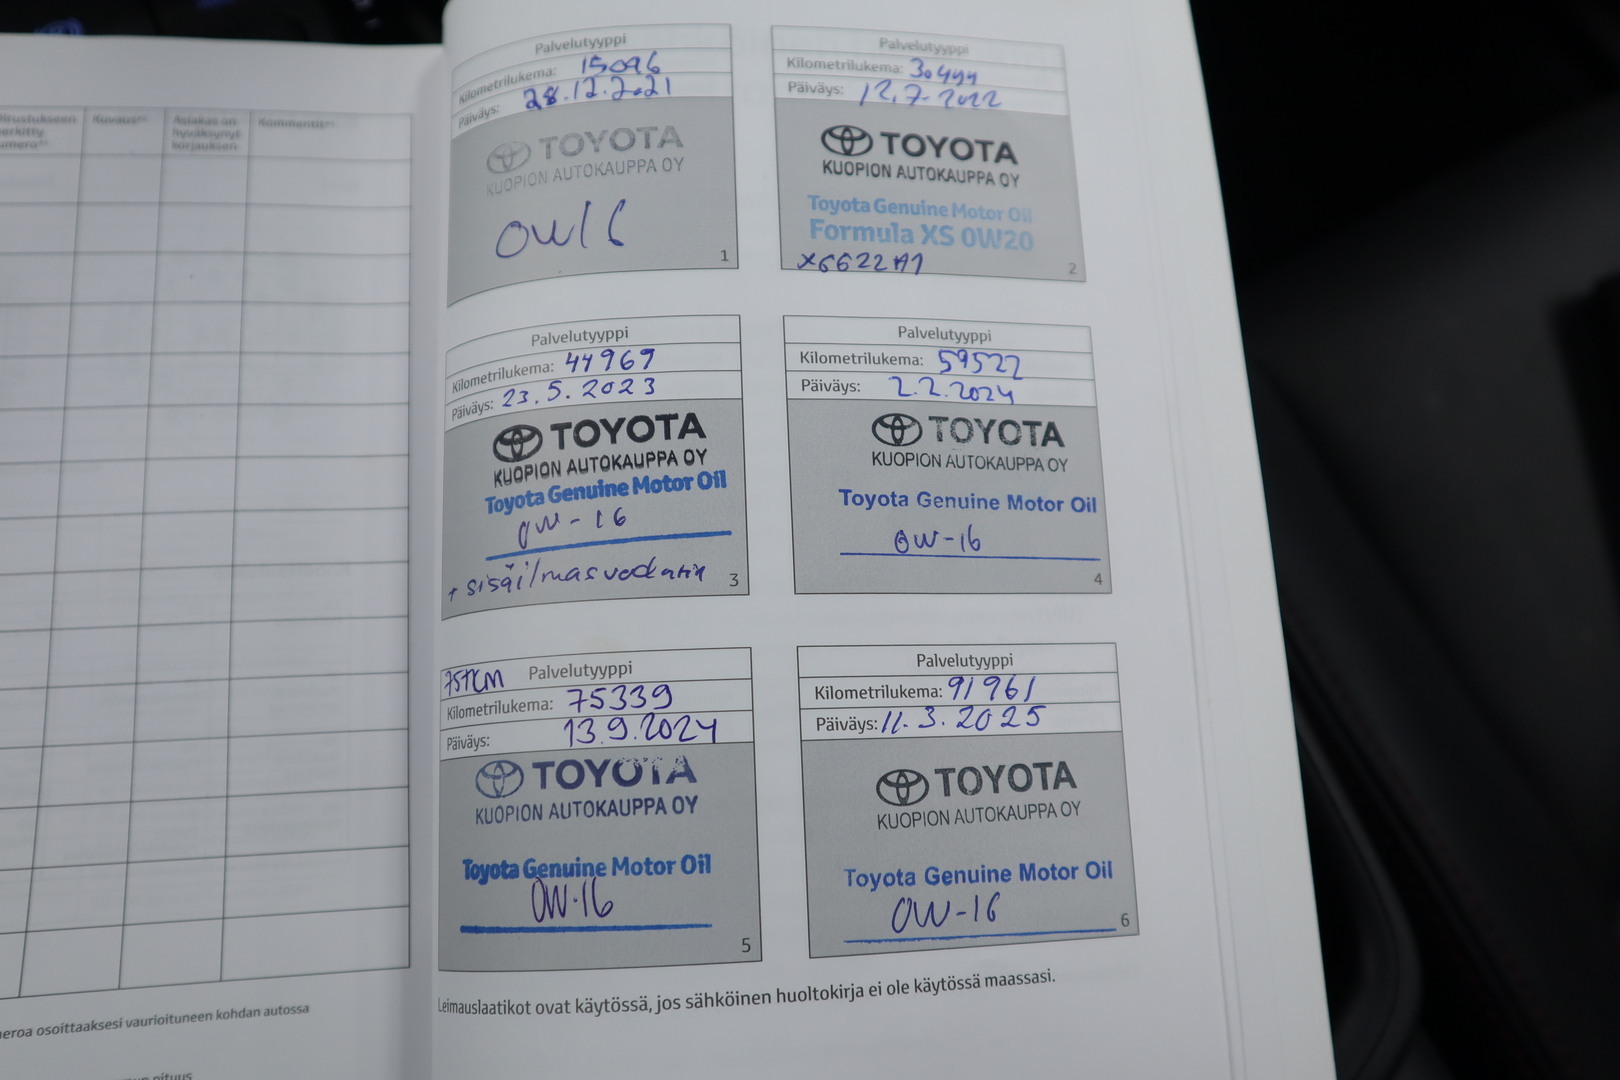 Kuvaus
Asiakas on
hyväksynyt
korjauksen
Kommentit
Palvelutyyppi
Kilometrilukema: 15096
Päiväys: 28.12.2021
TOYOTA
KUOPION AUTOKAUPPA OY
0W16
1
Palvelutyyppi
Kilometrilukema: 30499
Päiväys: 12.7.2022
TOYOTA
KUOPION AUTOKAUPPA OY
Toyota Genuine Motor Oil
Formula XS 0W20
X6622A1
2
Palvelutyyppi
Kilometrilukema: 44969
Päiväys: 23.5.2023
TOYOTA
KUOPION AUTOKAUPPA OY
Toyota Genuine Motor Oil
0W-16
+ sisäilmasuodatin
3
Palvelutyyppi
Kilometrilukema: 59522
Päiväys: 2.2.2024
TOYOTA
KUOPION AUTOKAUPPA OY
Toyota Genuine Motor Oil
0W-16
4
Palvelutyyppi
Kilometrilukema: 75339
Päiväys: 13.9.2024
TOYOTA
KUOPION AUTOKAUPPA OY
Toyota Genuine Motor Oil
0W-16
5
Palvelutyyppi
Kilometrilukema: 91961
Päiväys: 11.3.2025
TOYOTA
KUOPION AUTOKAUPPA OY
Toyota Genuine Motor Oil
0W-16
6
Leimauslaatikot ovat käytössä, jos sähköinen huoltokirja ei ole käytössä maassasi.
osoittaaksesi vaurioituneen kohdan autossa
pituus